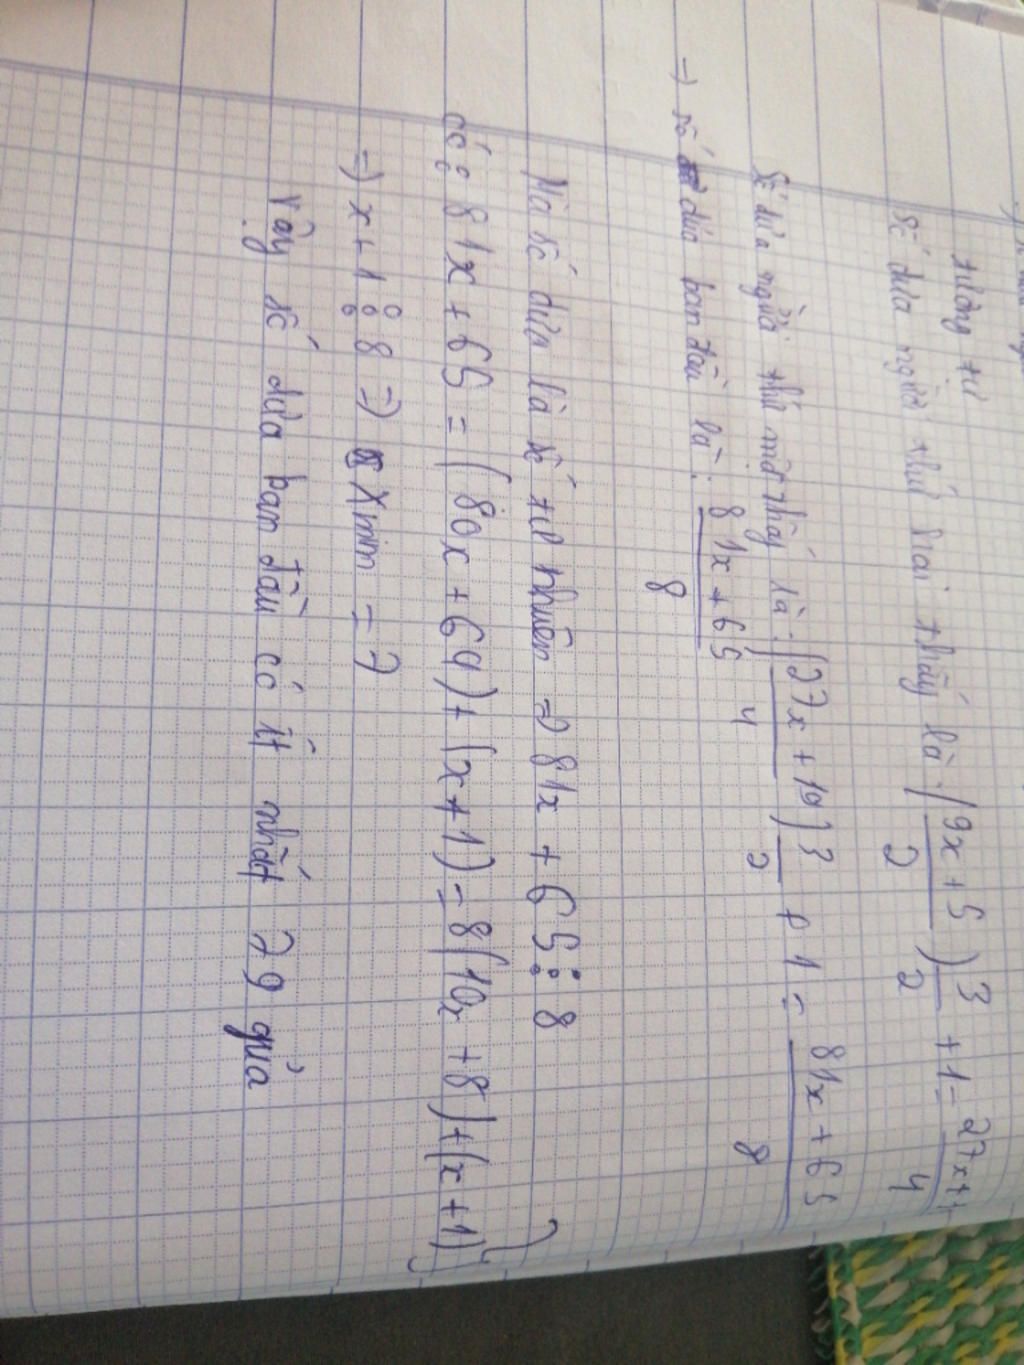 tương tự
Số dừa người thứ hai thấy là: (9x + 5 / 2) 3/2 + 1 = 27x + / 4
Số dừa người thứ một thấy là: (27x + 19 / 4) 3/2 + 1 = 81x + 65 / 8
=> số dừa ban đầu là: 81x + 65 / 8
Mà số dừa là số tự nhiên => 81x + 65 ⋮ 8
có: 81x + 65 = (80x + 64) + (x + 1) = 8(10x + 8) + (x + 1)
=> x + 1 ⋮ 8 => xmin = 7
Vậy số dừa ban đầu có ít nhất 79 quả